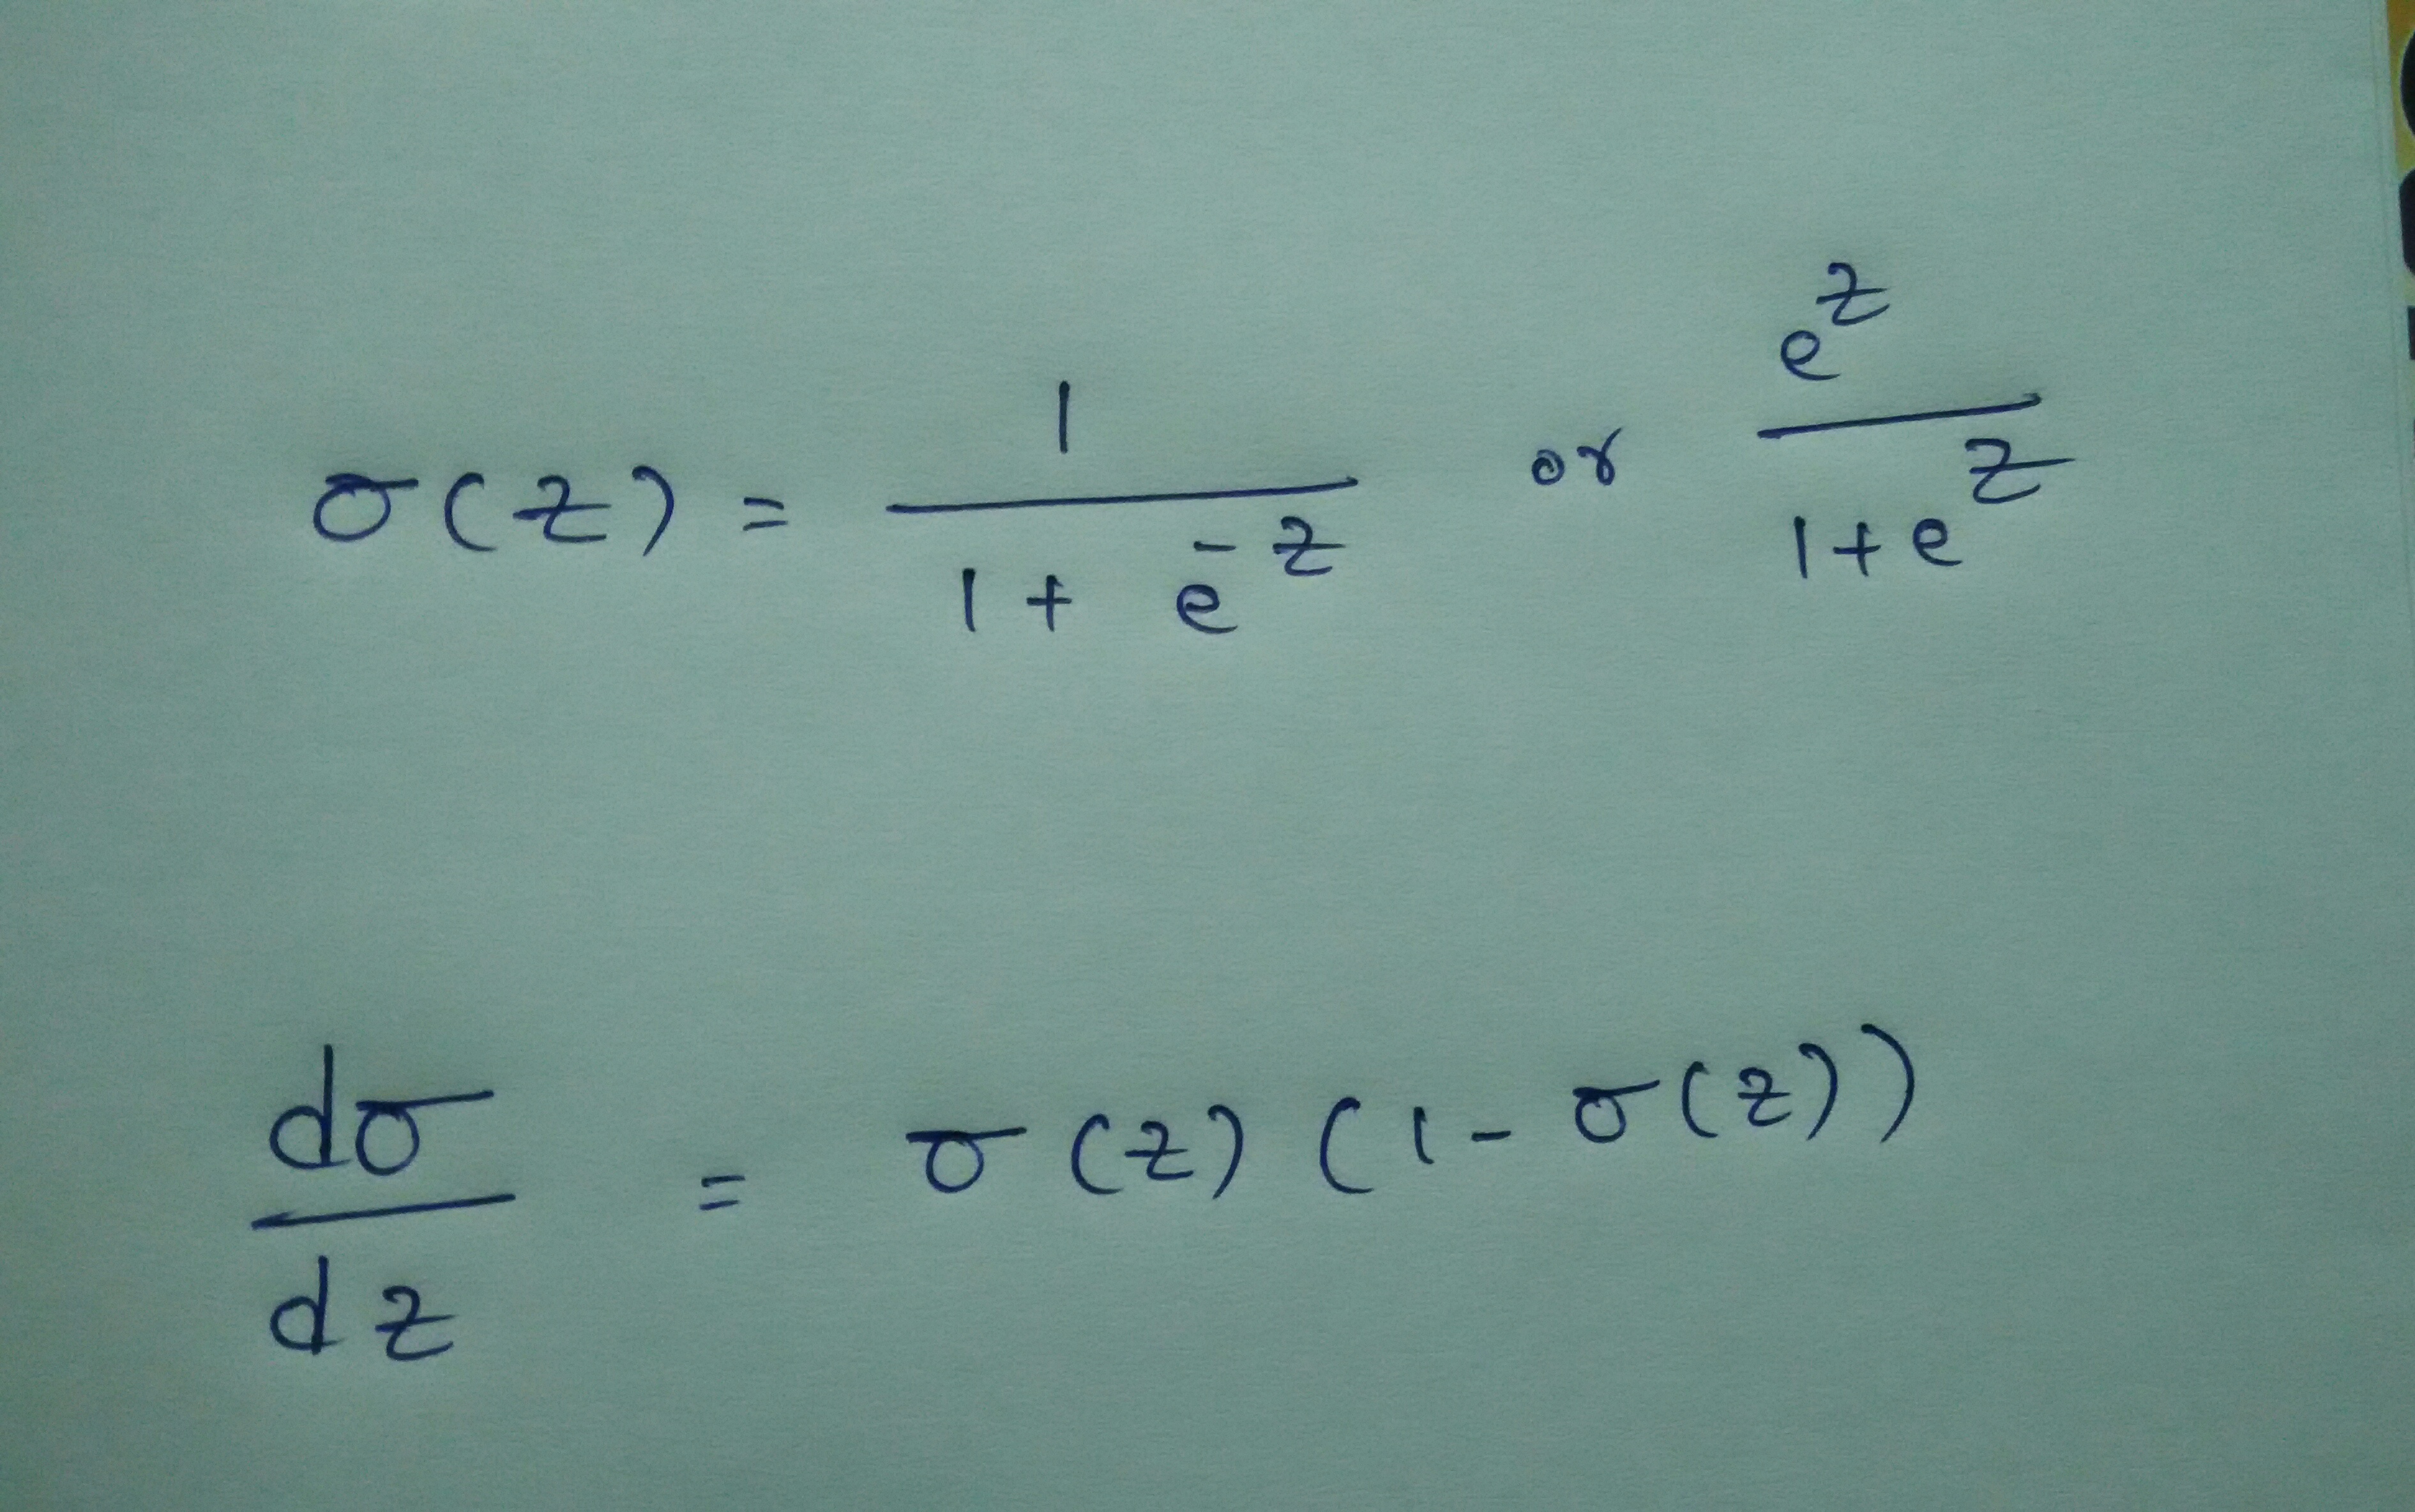 σ(z) = 1 / (1 + e^-z) or e^z / (1+e^z)
dσ/dz = σ(z) (1 - σ(z))